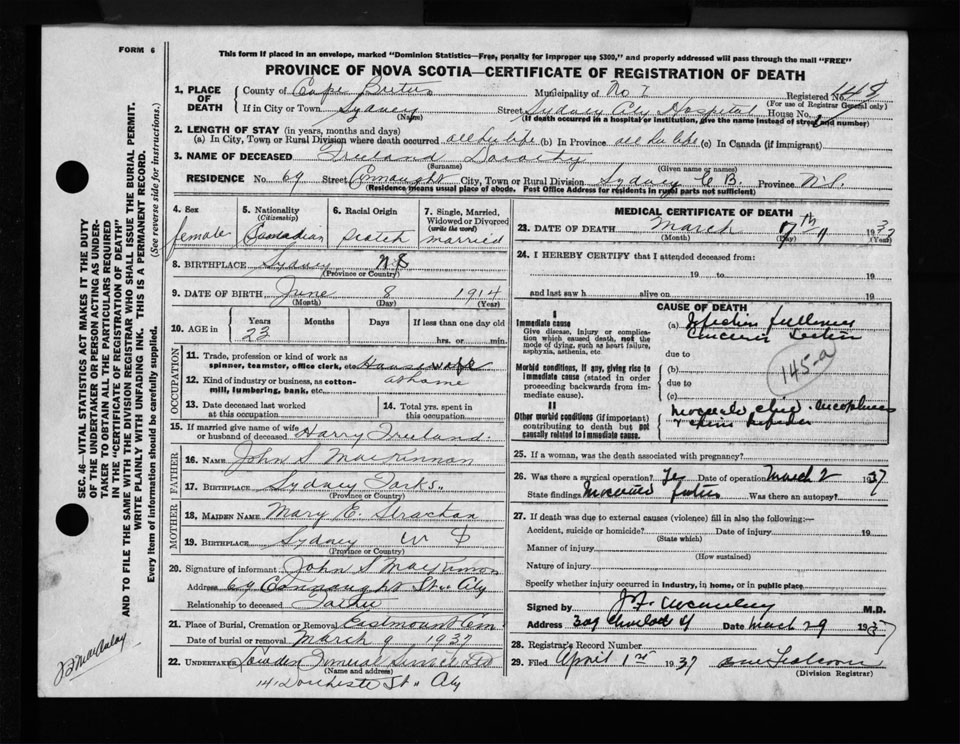 FORM 6
This form if placed in an envelope, marked "Dominion Statistics—Free, penalty for improper use $300," and properly addressed will pass through the mail "FREE"
PROVINCE OF NOVA SCOTIA—CERTIFICATE OF REGISTRATION OF DEATH
1. PLACE OF DEATH
County of Cape Breton Municipality of No 7 Registered No.
(For use of Registrar General only)
If in City or Town Sydney Street Sydney City Hospital House No.
(Name) (If death occurred in a hospital or institution, give the name instead of street and number)
2. LENGTH OF STAY (in years, months and days)
(a) In City, Town or Rural Division where death occurred all her life (b) In Province all her life (c) In Canada (if immigrant)
3. NAME OF DECEASED Freeland Dorothy
(Surname) (Given name or names)
RESIDENCE No. 69 Street Connaught City, Town or Rural Division Sydney C B. Province N.S.
(Residence means usual place of abode. Post Office Address for residents in rural parts not sufficient)
4. Sex female
5. Nationality (Citizenship) Canadian
6. Racial Origin Scotch
7. Single, Married, Widowed or Divorced (write the word) married
8. BIRTHPLACE Sydney N S
(Province or Country)
9. DATE OF BIRTH June 8 1914
(Month) (Day) (Year)
10. AGE in Years Months Days If less than one day old
23 hrs. or min.
OCCUPATION
11. Trade, profession or kind of work as spinner, teamster, office clerk, etc. Housewife
12. Kind of industry or business, as cotton-mill, lumbering, bank, etc. at home
13. Date deceased last worked at this occupation
14. Total yrs. spent in this occupation
15. If married give name of wife or husband of deceased Harry Freeland.
FATHER
16. NAME John S MacKinnon
17. BIRTHPLACE Sydney Forks.
(Province or Country)
MOTHER
18. MAIDEN NAME Mary E. Strachan
19. BIRTHPLACE Sydney
(Province or Country)
20. Signature of informant John S MacKinnon
Address 69 Connaught St. City
Relationship to deceased Father
21. Place of Burial, Cremation or Removal Eastmount Cem
Date of burial or removal March 9 1937
22. UNDERTAKER Funeral Service Ltd
(Name and address)
14 Dorchester St. City
MEDICAL CERTIFICATE OF DEATH
23. DATE OF DEATH March 7th 1937
(Month) (Day) (Year)
24. I HEREBY CERTIFY that I attended deceased from:
19 to 19
and last saw h alive on 19
CAUSE OF DEATH
I
Immediate cause
Give disease, injury or complication which caused death, not the mode of dying, such as heart failure, asphyxia, asthenia, etc.
(a) Infection following
due to
145-a
Morbid conditions, if any, giving rise to immediate cause (stated in order proceeding backwards from immediate cause).
(b)
due to
(c)
II
Other morbid conditions (if important) contributing to death but not causally related to immediate cause.
25. If a woman, was the death associated with pregnancy?
26. Was there a surgical operation? Yes Date of operation March 2 1937
State findings Was there an autopsy?
27. If death was due to external causes (violence) fill in also the following:—
Accident, suicide or homicide? Date of injury 19
(State which)
Manner of injury
(How sustained)
Nature of injury
Specify whether injury occurred in industry, in home, or in public place
Signed by M.D.
Address Date March 29 1937
28. Registrar's Record No.
29. Filed April 1st 1937
(Division Registrar)
SEC. 46—VITAL STATISTICS ACT MAKES IT THE DUTY
OF THE UNDERTAKER OR PERSON ACTING AS UNDER-
TAKER TO OBTAIN ALL THE PARTICULARS REQUIRED
IN THE "CERTIFICATE OF REGISTRATION OF DEATH"
AND TO FILE THE SAME WITH THE DIVISION REGISTRAR WHO SHALL ISSUE THE BURIAL PERMIT.
WRITE PLAINLY WITH UNFADING INK. THIS IS A PERMANENT RECORD.
Every item of information should be carefully supplied. (See reverse side for instructions.)